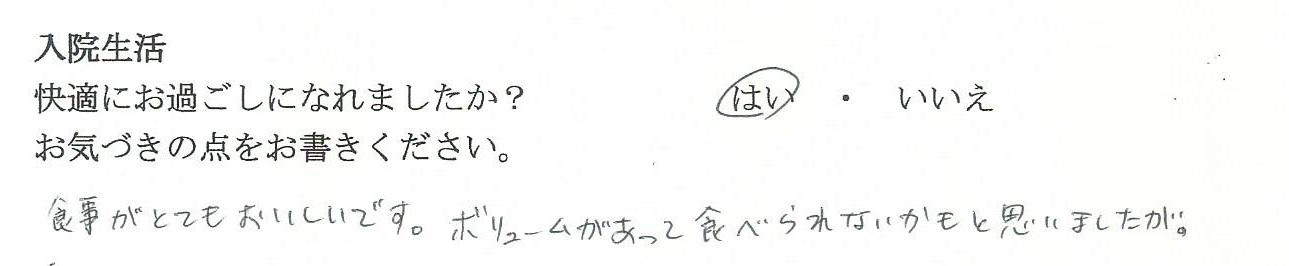 入院生活
快適にお過ごしになれましたか？ はい ・ いいえ
お気づきの点をお書きください。
食事がとてもおいしいです。ボリュームがあって食べられないかもと思いましたが。